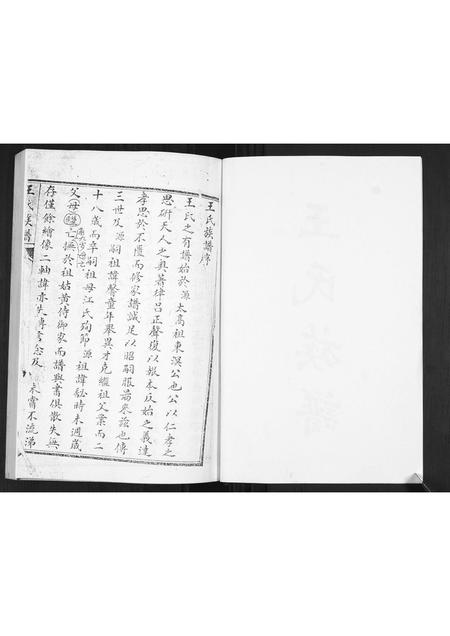 王氏族譜序
王氏之有譜始於源太高祖東溟公也公以仁孝之
思研天人之奧著律呂正聲復以報本反始之義達
孝思於不匱而修家譜誠足以昭嗣服而來茲也傳
三世及源嗣祖諱馨童年舉異才克繼祖父業而二
十八歲而卒嗣祖母江氏殉節源祖諱馝時未週歲
父母繼亡撫於祖姑黃侍御家而譜與書俱散失無
存僅餘繪像二軸諱亦失傳考愈及未嘗不流涕
王氏族譜
王氏族譜